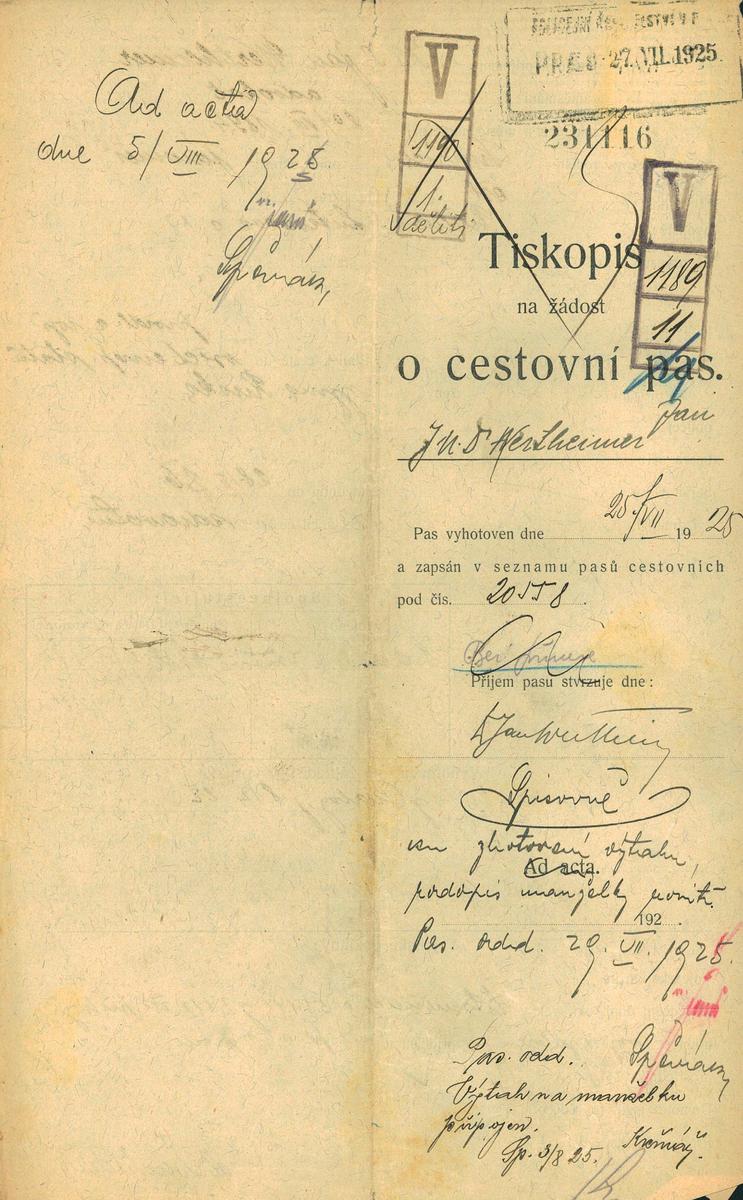 Ad acta
dne 5/VIII 1925.
V
1190
1.
V
1189
11
PRA 27.VII.1925
231116
Tiskopis
na žádost
o cestovní pas.
JUDr Wertheimer Jan
Pas vyhotoven dne 25/VII 1925
a zapsán v seznamu pasů cestovních
pod čís. 20558.
Bez
Příjem pasu stvrzuje dne:
Spisovně
zhotovení výtahu,
Ad acta.
podopis manželky
192
Pas. odd. 29. VII. 1925.
Pas. odd.
Výtah na manželku
připojen.
Sp. 3/8 25.